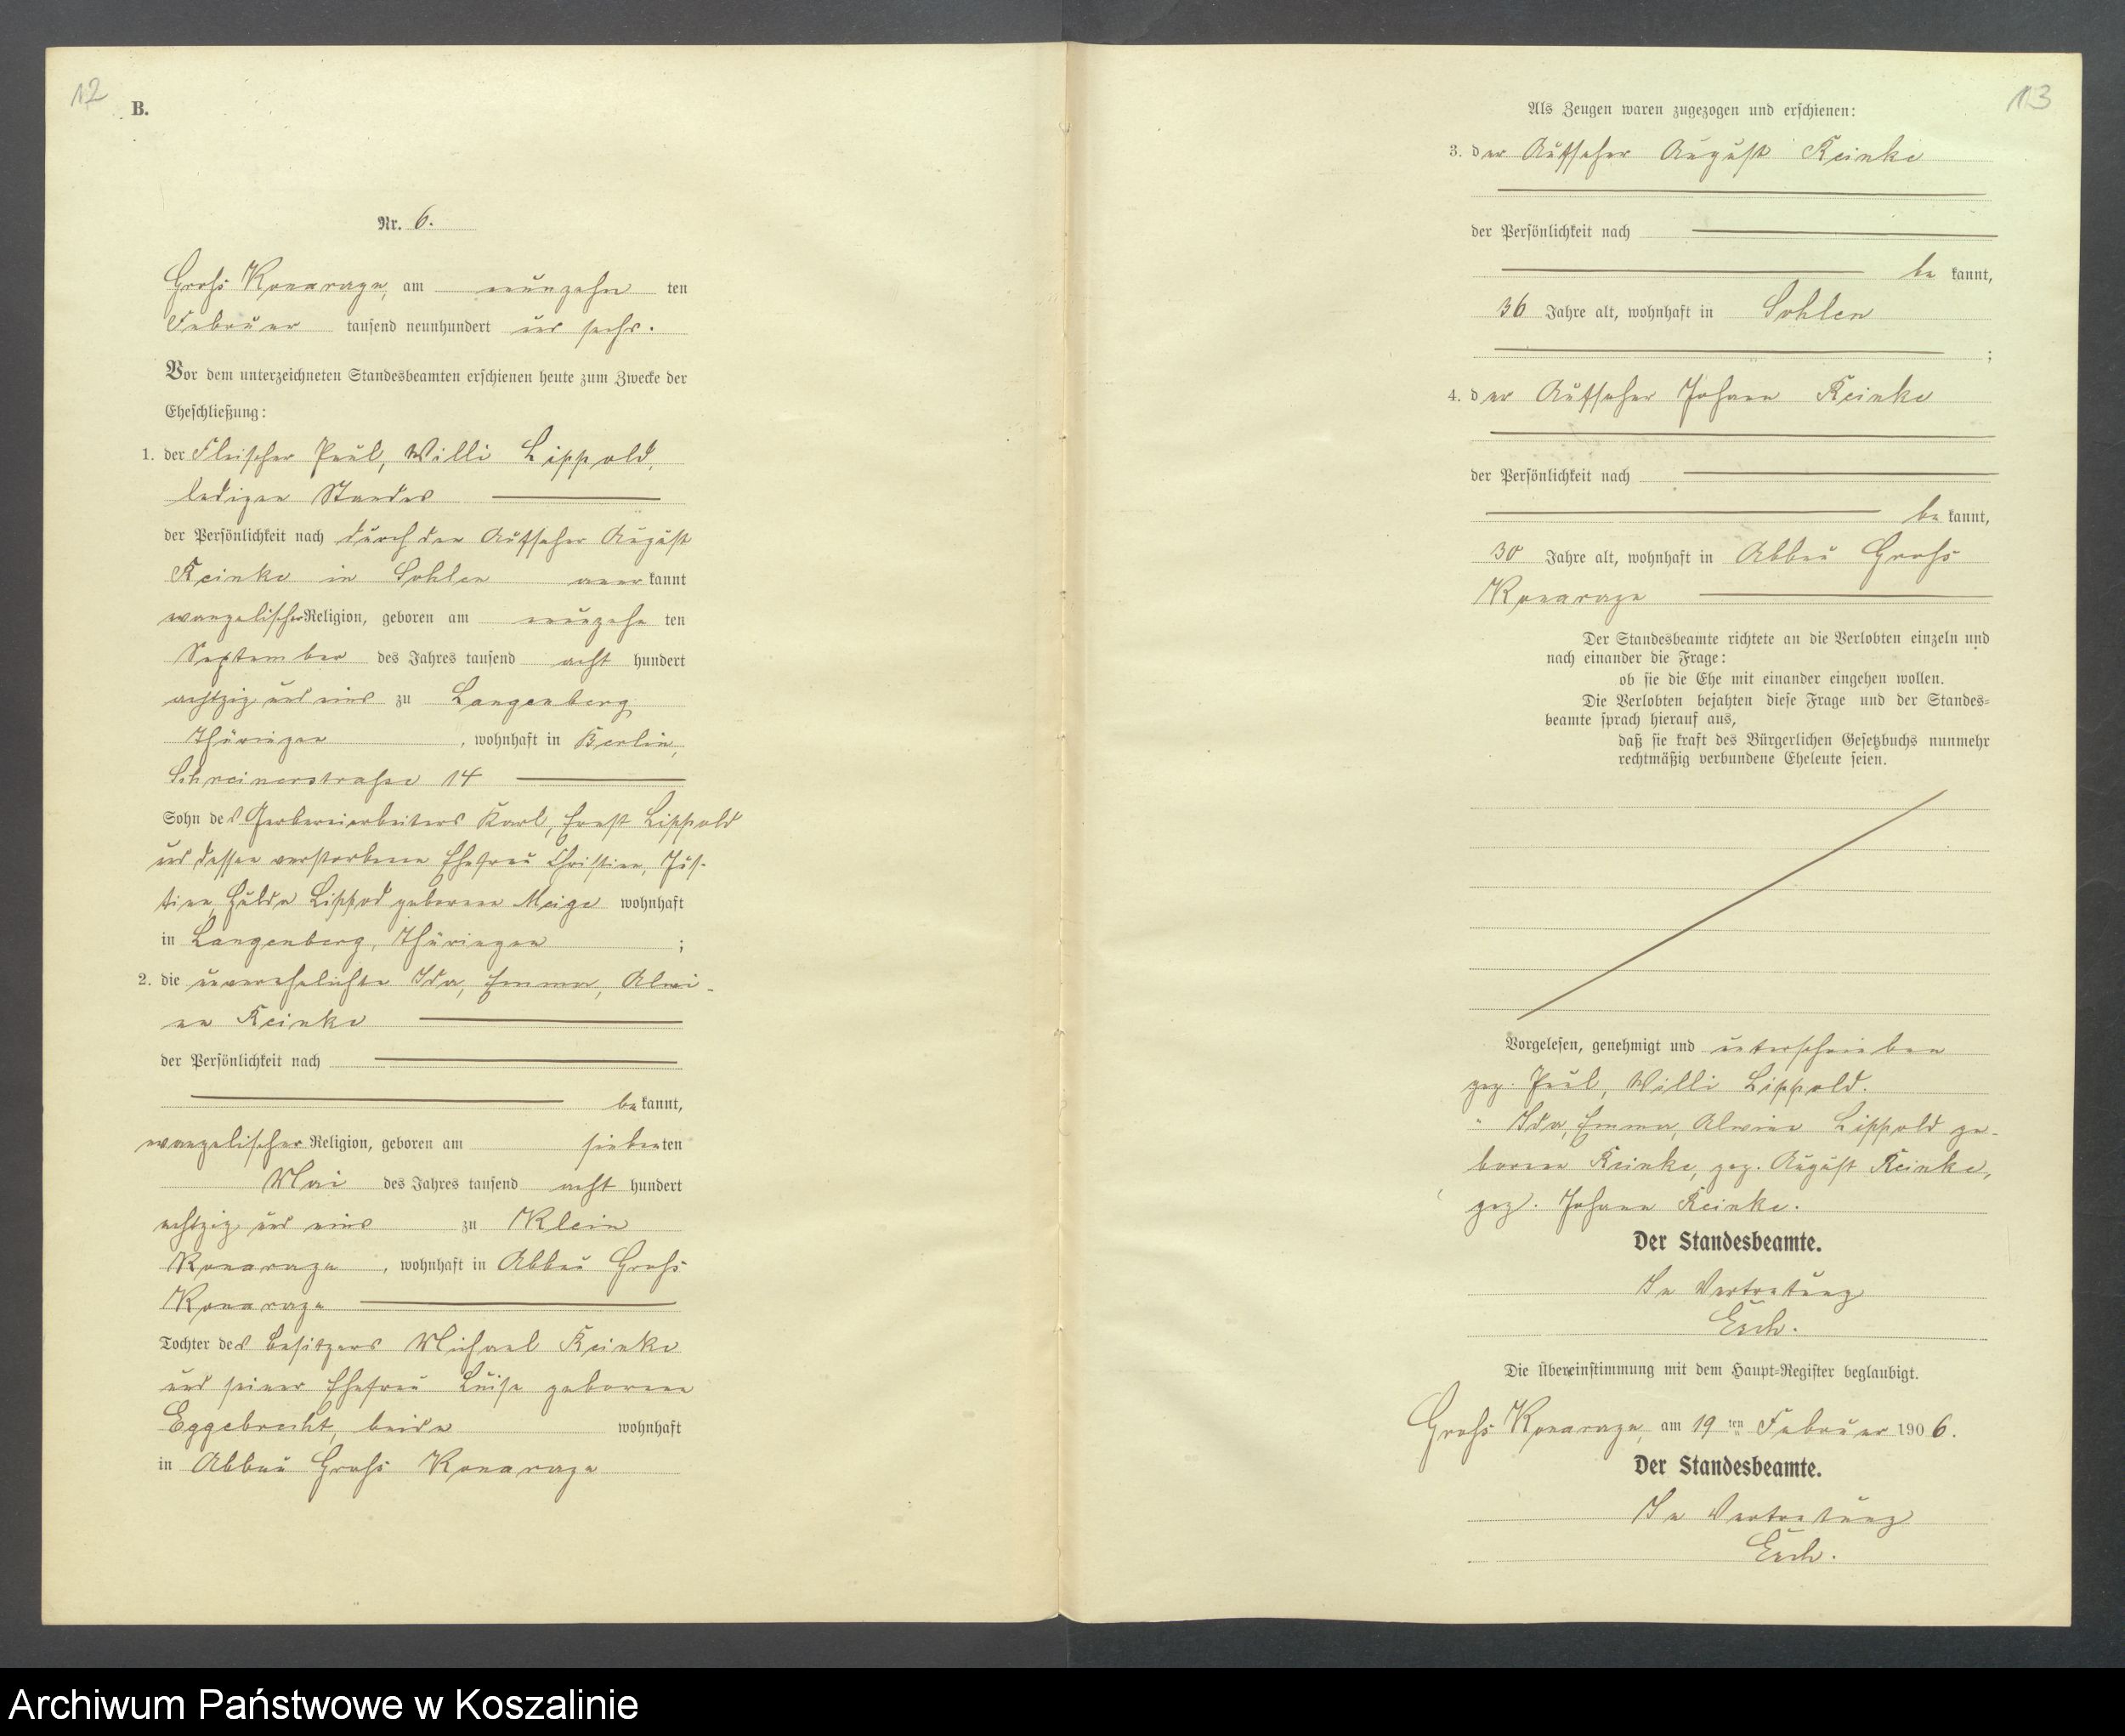 12
B.
Nr. 6.
Groß Konarzyn, am neunzehn ten
Februar tausend neunhundert und sechs.
Vor dem unterzeichneten Standesbeamten erschienen heute zum Zwecke der
Eheschließung:
1. der Fleischer Paul, Willi Lippold,
ledigen Standes
der Persönlichkeit nach durch den Aufseher August
Reinke in Sohlen aner kannt
evangelischer Religion, geboren am neunzehn ten
September des Jahres tausend acht hundert
achtzig und eins zu Langenberg
Thüringen, wohnhaft in Berlin,
Schreinerstraße 14
Sohn des Gerbereiarbeiters Karl, Ernst Lippold
und dessen verstorbenen Ehefrau Christine, Jus-
tine, Hulda Lippod geborenen Meige wohnhaft
in Langenberg, Thüringen ;
2. die unverehelichte Ida, Emma, Alwi-
ne Reinke
der Persönlichkeit nach
be kannt,
evangelischer Religion, geboren am sieben ten
Mai des Jahres tausend acht hundert
achtzig und eins zu Klein
Konarzyn, wohnhaft in Abbau Groß
Konarzyn
Tochter des Besitzers Michael Reinke
und seiner Ehefrau Luise geborenen
Eggebrecht, beide wohnhaft
in Abbau Groß Konarzyn
13
Als Zeugen waren zugezogen und erschienen:
3. der Aufseher August Reinke
der Persönlichkeit nach
be kannt,
36 Jahre alt, wohnhaft in Sohlen
;
4. der Aufseher Johann Reinke
der Persönlichkeit nach
be kannt,
30 Jahre alt, wohnhaft in Abbau Groß
Konarzyn
Der Standesbeamte richtete an die Verlobten einzeln und
nach einander die Frage:
ob sie die Ehe mit einander eingehen wollen.
Die Verlobten bejahten diese Frage und der Standes-
beamte sprach hierauf aus,
daß sie kraft des Bürgerlichen Gesetzbuchs nunmehr
rechtmäßig verbundene Eheleute seien.
Vorgelesen, genehmigt und unterschrieben
gez. Paul, Willi Lippold.
" Ida, Emma, Alwine Lippold ge-
borene Reinke, gez. August Reinke,
gez. Johann Reinke.
Der Standesbeamte.
In Vertretung
Esch.
Die Übereinstimmung mit dem Haupt-Register beglaubigt.
Groß Konarzyn, am 19 ten Februar 1906.
Der Standesbeamte.
In Vertretung
Esch.
Archiwum Państwowe w Koszalinie